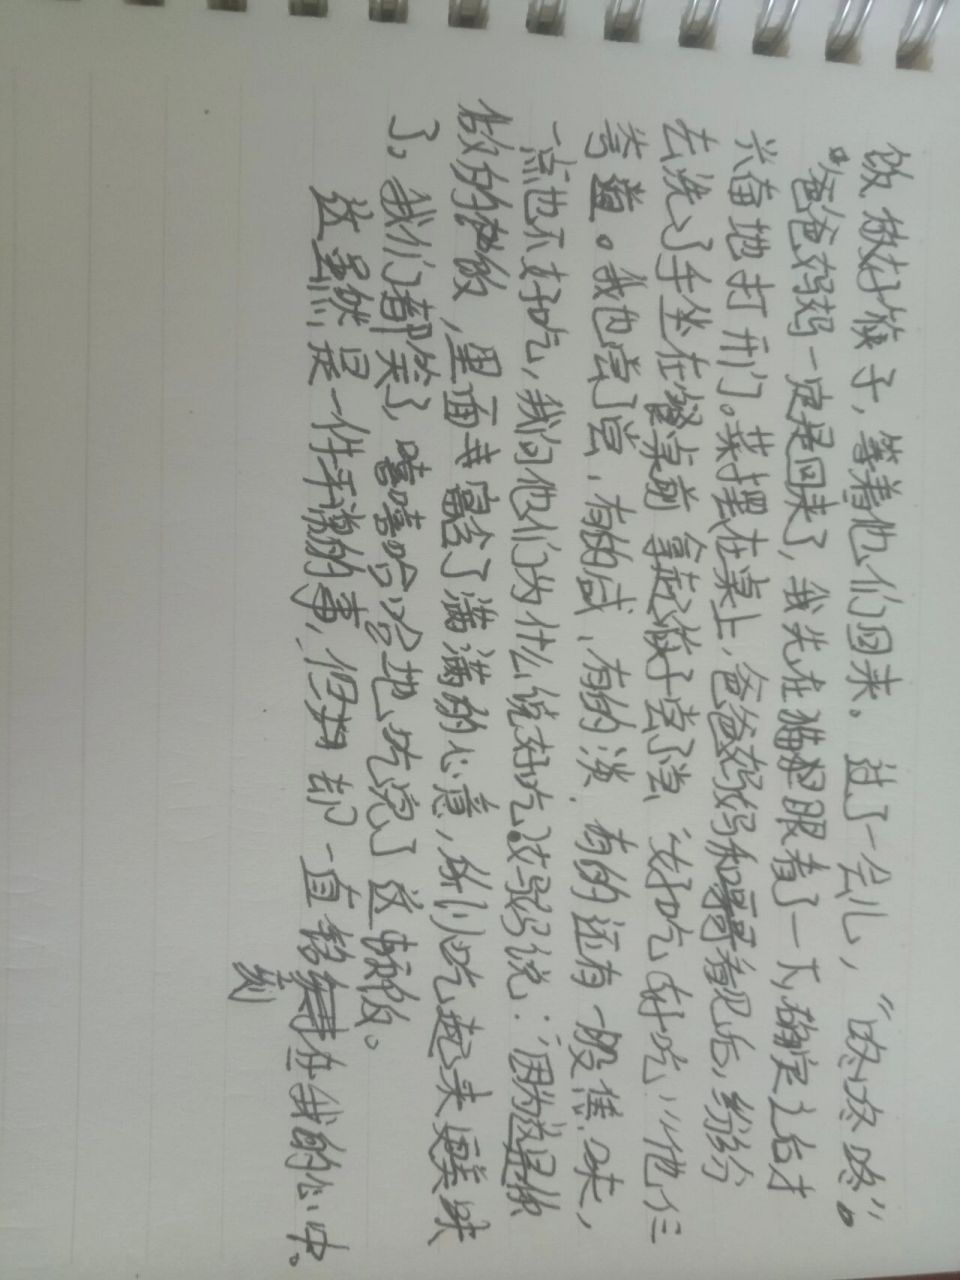 饭放好筷子，等着他们回来。过了一会儿，“咚咚咚”。
“爸爸妈妈一定是回来了，我先在猫眼看了一下，确定之后才
兴奋地打开门。菜摆在桌上，爸爸妈妈和哥哥看见后，纷纷
去洗了手坐在餐桌前 拿起筷子尝了尝 “好吃，好吃”他们
夸道。我也尝了尝，有的咸、有的淡，有的还有一股焦味，
一点也不好吃，我问他们为什么说好吃？妈妈说：“因为这是你
做的饭，里面幸富含了满满的心意，所以吃起来更美味
了。我们都笑了，嘻嘻哈哈地吃完了这顿饭。
这虽然是一件平淡的事，但却一直铭刻在我的心中。